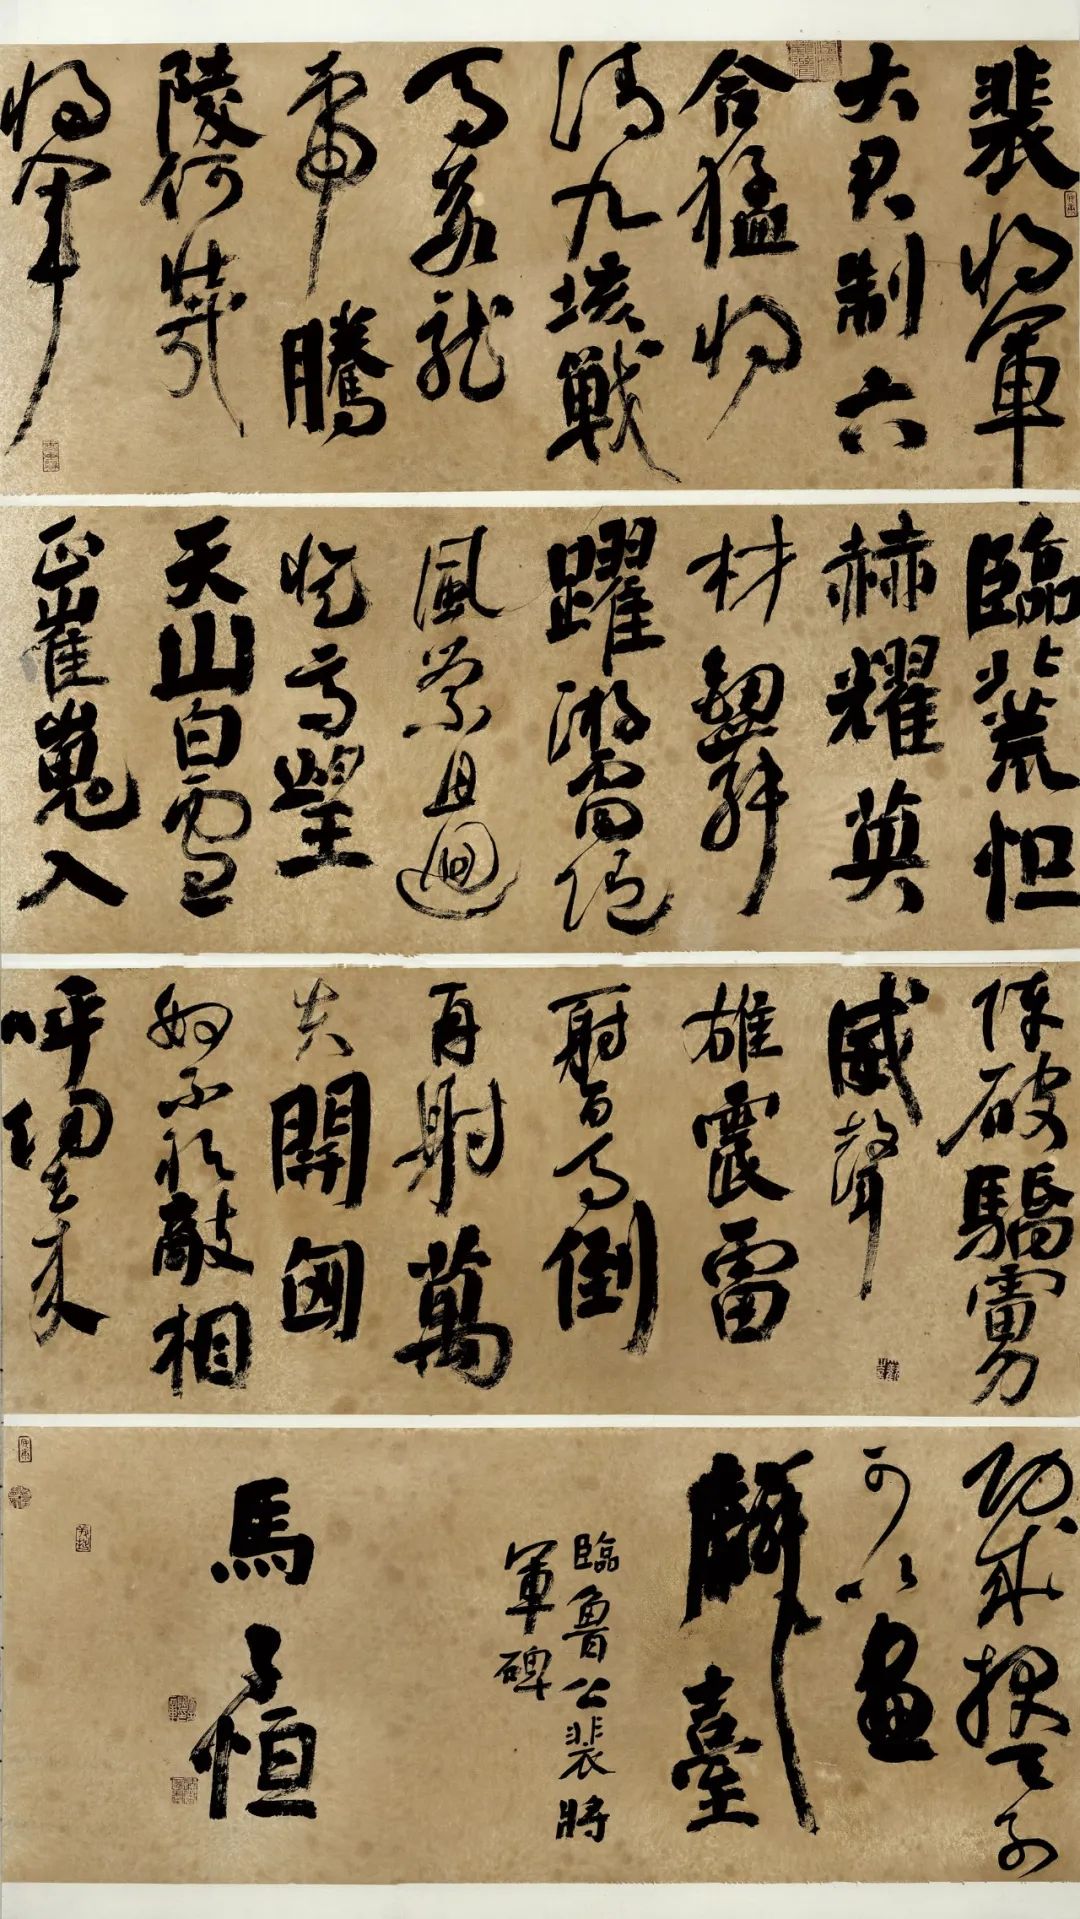 裴将軍
大君制六
合猛将
清九垓戰
馬若龍
虎騰
陵何壯哉
将軍
臨北荒恒
赫耀英
材劒舞
躍游雷随
風縈且迴
登高望
天山白雪
正崔嵬入
陣破驕虜
威聲
雄震雷
一射百馬倒
再射萬
夫開匈
奴不敢敵相
呼歸去来
功成報天子
可以畫
麟臺
臨魯公裴將
軍碑
馬子恒